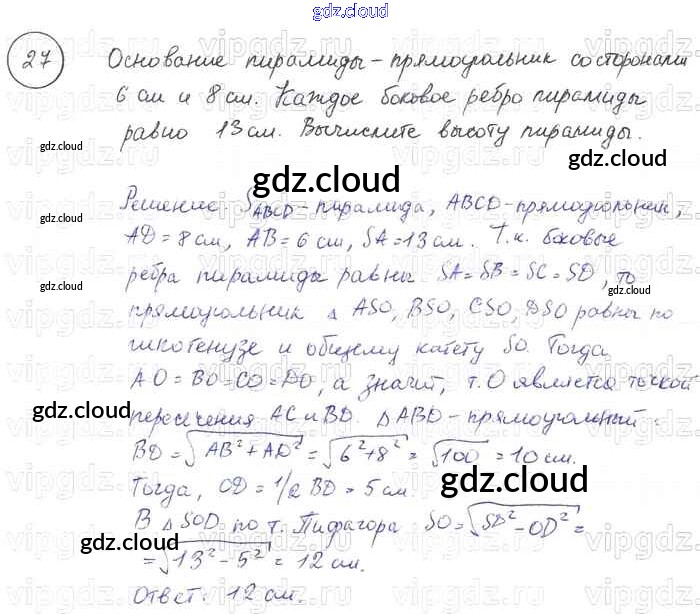 gdz.cloud
27
Основание пирамиды - прямоугольник со сторонами
6 см и 8 см. Каждое боковое ребро пирамиды
равно 13 см. Вычислите высоту пирамиды.
gdz.cloud
gdz.cloud
gdz.cloud
gdz.cloud
Решение. SABCD - пирамида, ABCD - прямоугольник,
gdz.cloud
AD = 8 см, AB = 6 см, SA = 13 см. Т.к. боковые
ребра пирамиды равны SA = SB = SC = SD, то
gdz.cloud
gdz.cloud
прямоугольник △ ASO, BSO, CSO, DSO равны по
гипотенузе и общему катету SO. Тогда
AO = BO = CO = DO, а значит, т. O является точкой
gdz.cloud
gdz.cloud
пересечения AC и BD. △ ABD - прямоугольный.
BD = √AB² + AD² = √6² + 8² = √100 = 10 см.
gdz.cloud
Тогда, OD = 1/2 BD = 5 см.
В △ SOD по т. Пифагора SO = √SD² - OD² =
gdz.cloud
= √13² - 5² = 12 см.
gdz.cloud
Ответ: 12 см.
gdz.cloud